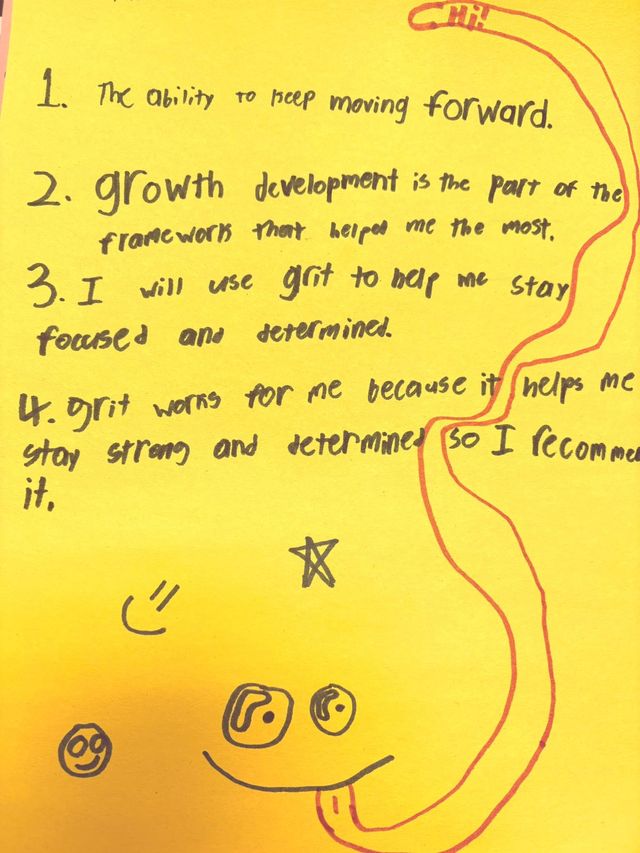 Hi!
1. The ability to keep moving forward.
2. growth development is the part of the
framework that helped me the most.
3. I will use grit to help me stay
focused and determined.
4. grit works for me because it helps me
stay strong and determined so I recommen
it.